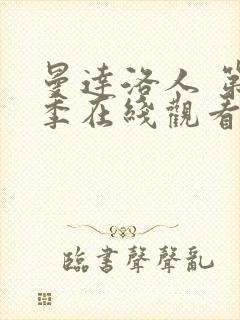 曼達洛人 第
季在綫觀看
臨書聲聲亂